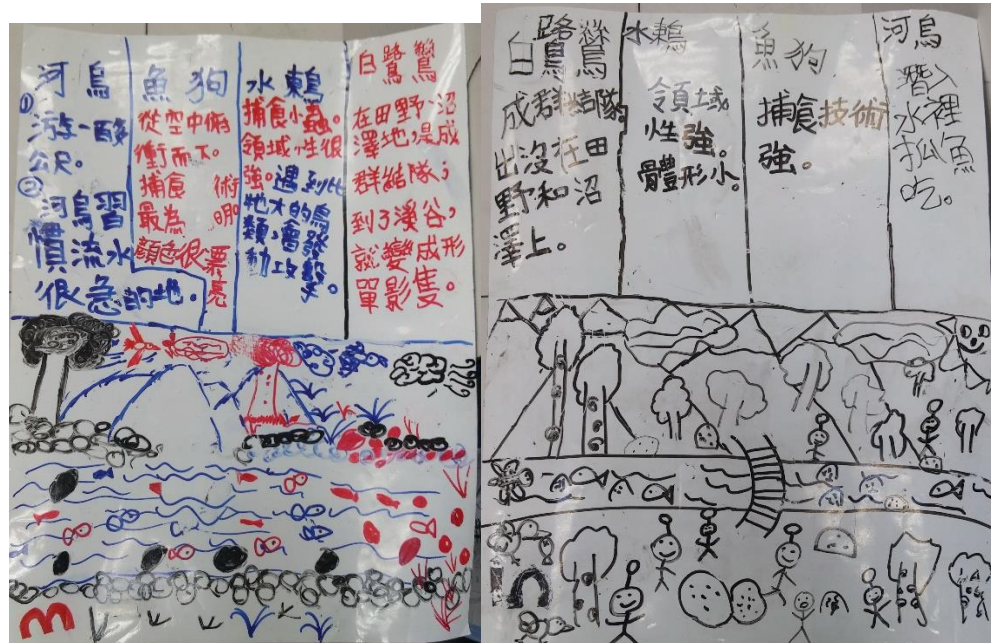 河烏
①
游一酸
公尺。
②
河烏習
慣流水
很急的地.
魚狗
從空中俯
衝而下。
捕食 術
最為 明
顏色很票
亮
水鶇
捕食小蟲。
領域性很
強。遇到比
牠大的鳥
類,會發
動攻擊。
白鷺鷥
在田野沼
澤地,是成
群結隊;
到了溪谷,
就變成形
單影隻。
白鷺鷥
成群結部隊。
出沒在田
野和沼
澤上。
水鶇
領域
性強。
體形小。
魚狗
捕食技術
強。
河烏
潛入
水裡
抓魚
吃。